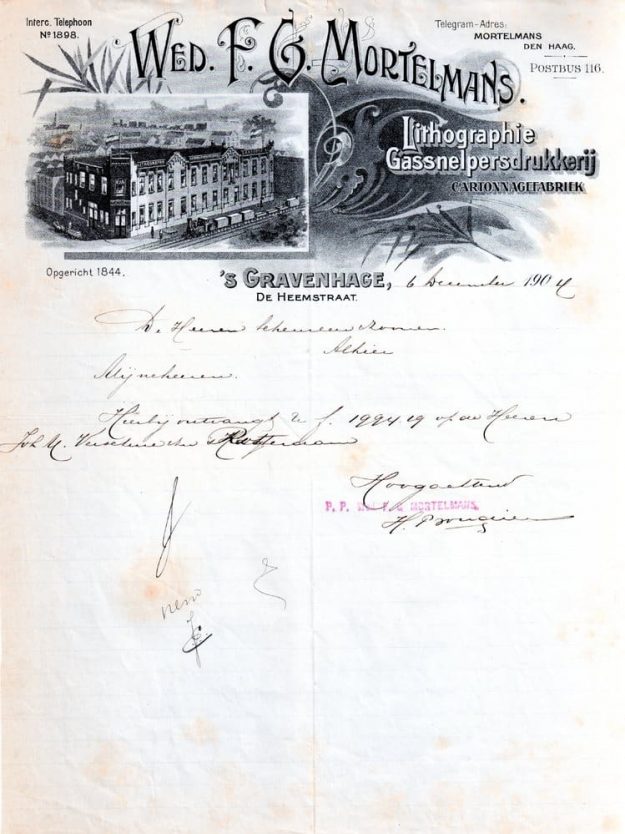 Interc. Telephoon
No 1898.
WED. F. G. MORTELMANS.
Telegram-Adres:
MORTELMANS
DEN HAAG.
POSTBUS 116.
Lithographie
Gassnelpersdrukkerij
CARTONNAGEFABRIEK
Opgericht 1844.
'S GRAVENHAGE, 6 December 1904
DE HEEMSTRAAT.
De Heeren
Alhier
Mijneheeren.
Hierbij ontvangt U f. 1994.19 op de Heeren
Joh M.
Hoogachtend
P. P. WED F. G MORTELMANS.
H.